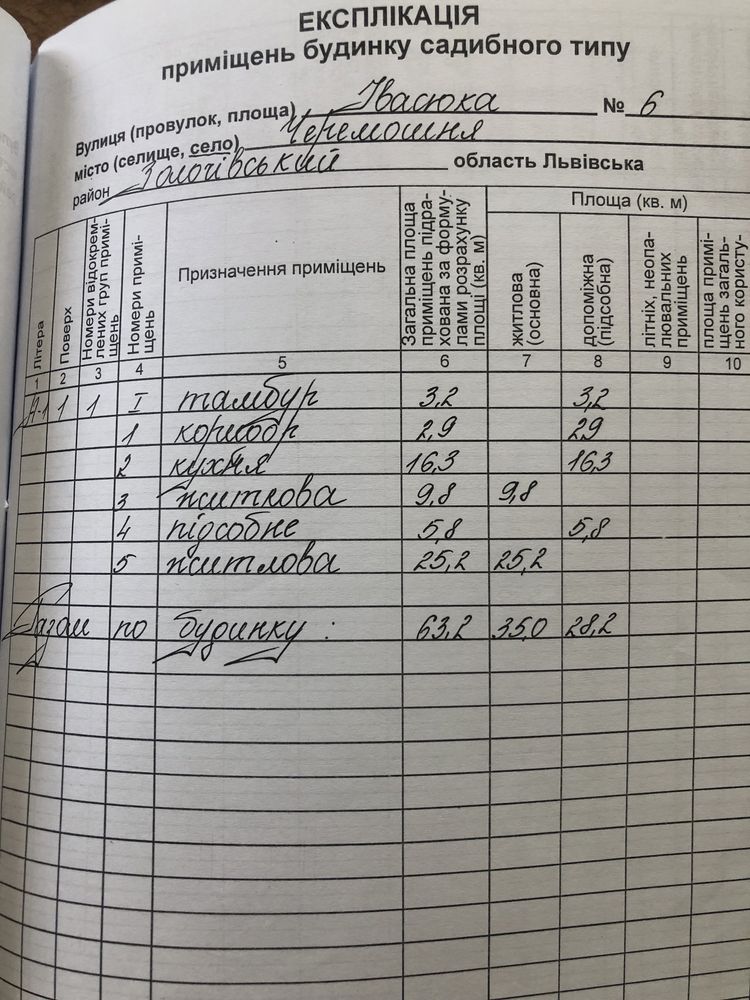 ЕКСПЛІКАЦІЯ
приміщень будинку садибного типу
Вулиця (провулок, площа) Івасюка № 6
місто (селище, село) Черемошня
район Золочівський область Львівська
Літера
Поверх
Номери відокрем-
лених груп примі-
щень
Номери примі-
щень
Призначення приміщень
Загальна площа
приміщень підра-
хована за форму-
лами розрахунку
площі (кв. м)
Площа (кв. м)
житлова
(основна)
допоміжна
(підсобна)
літніх, неопа-
лювальних
приміщень
площа примі-
щень загаль-
ного користу-
1 2 3 4 5 6 7 8 9 10
А-1 1 1 I тамбур 3,2 3,2
1 коридор 2,9 29
2 кухня 16,3 16,3
3 житлова 9,8 9,8
4 підсобне 5,8 5,8
5 житлова 25,2 25,2
Разом по будинку : 63,2 35,0 28,2